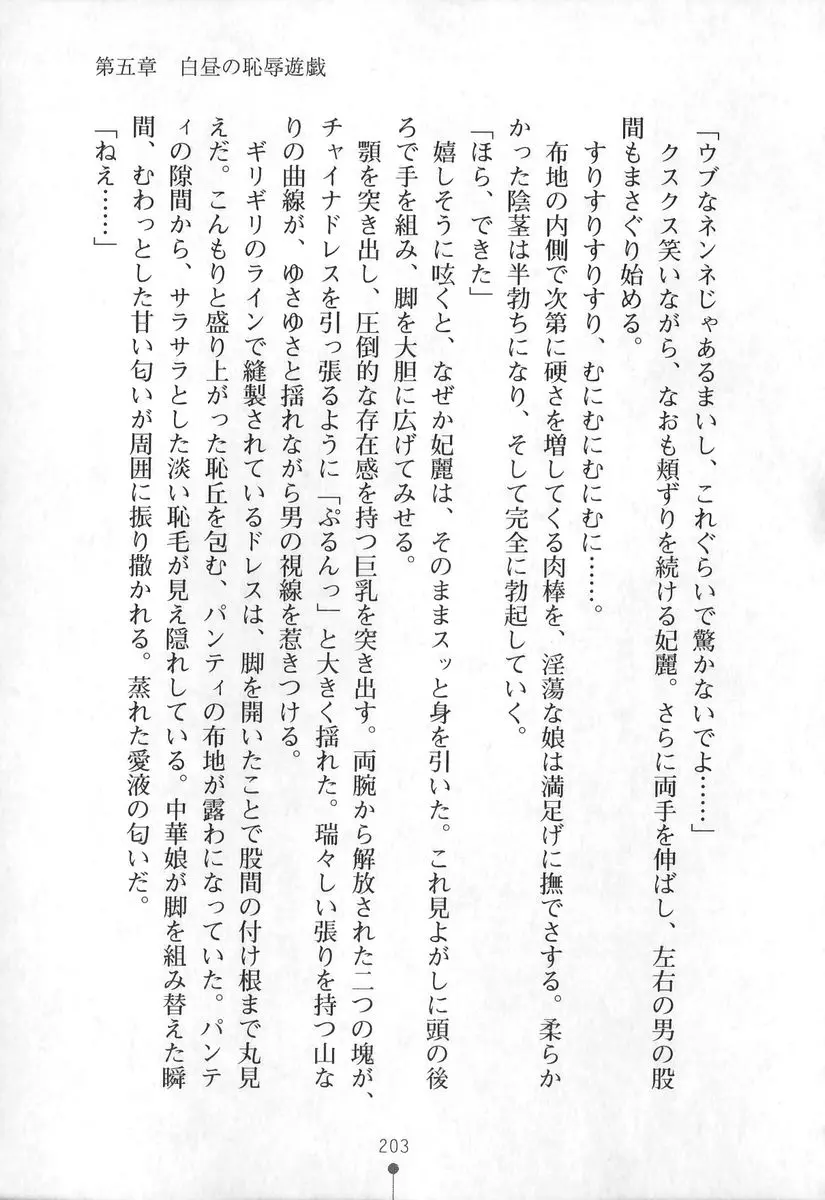 第五章　白昼の恥辱遊戯
「ウブなネンネじゃあるまいし、これぐらいで驚かないでよ……」
　クスクス笑いながら、なおも頬ずりを続ける妃麗。さらに両手を伸ばし、左右の男の股
間もまさぐり始める。
　すりすりすりすり、むにむにむにむに……。
　布地の内側で次第に硬さを増してくる肉棒を、淫蕩な娘は満足げに撫でさする。柔らか
かった陰茎は半勃ちになり、そして完全に勃起していく。
「ほら、できた」
　嬉しそうに呟くと、なぜか妃麗は、そのままスッと身を引いた。これ見よがしに頭の後
ろで手を組み、脚を大胆に広げてみせる。
　顎を突き出し、圧倒的な存在感を持つ巨乳を突き出す。両腕から解放された二つの塊が、
チャイナドレスを引っ張るように「ぷるんっ」と大きく揺れた。瑞々しい張りを持つ山な
りの曲線が、ゆさゆさと揺れながら男の視線を惹きつける。
　ギリギリのラインで縫製されているドレスは、脚を開いたことで股間の付け根まで丸見
えだ。こんもりと盛り上がった恥丘を包む、パンティの布地が露わになっていた。パンテ
ィの隙間から、サラサラとした淡い恥毛が見え隠れしている。中華娘が脚を組み替えた瞬
間、むわっとした甘い匂いが周囲に振り撒かれる。蒸れた愛液の匂いだ。
「ねえ……」
203